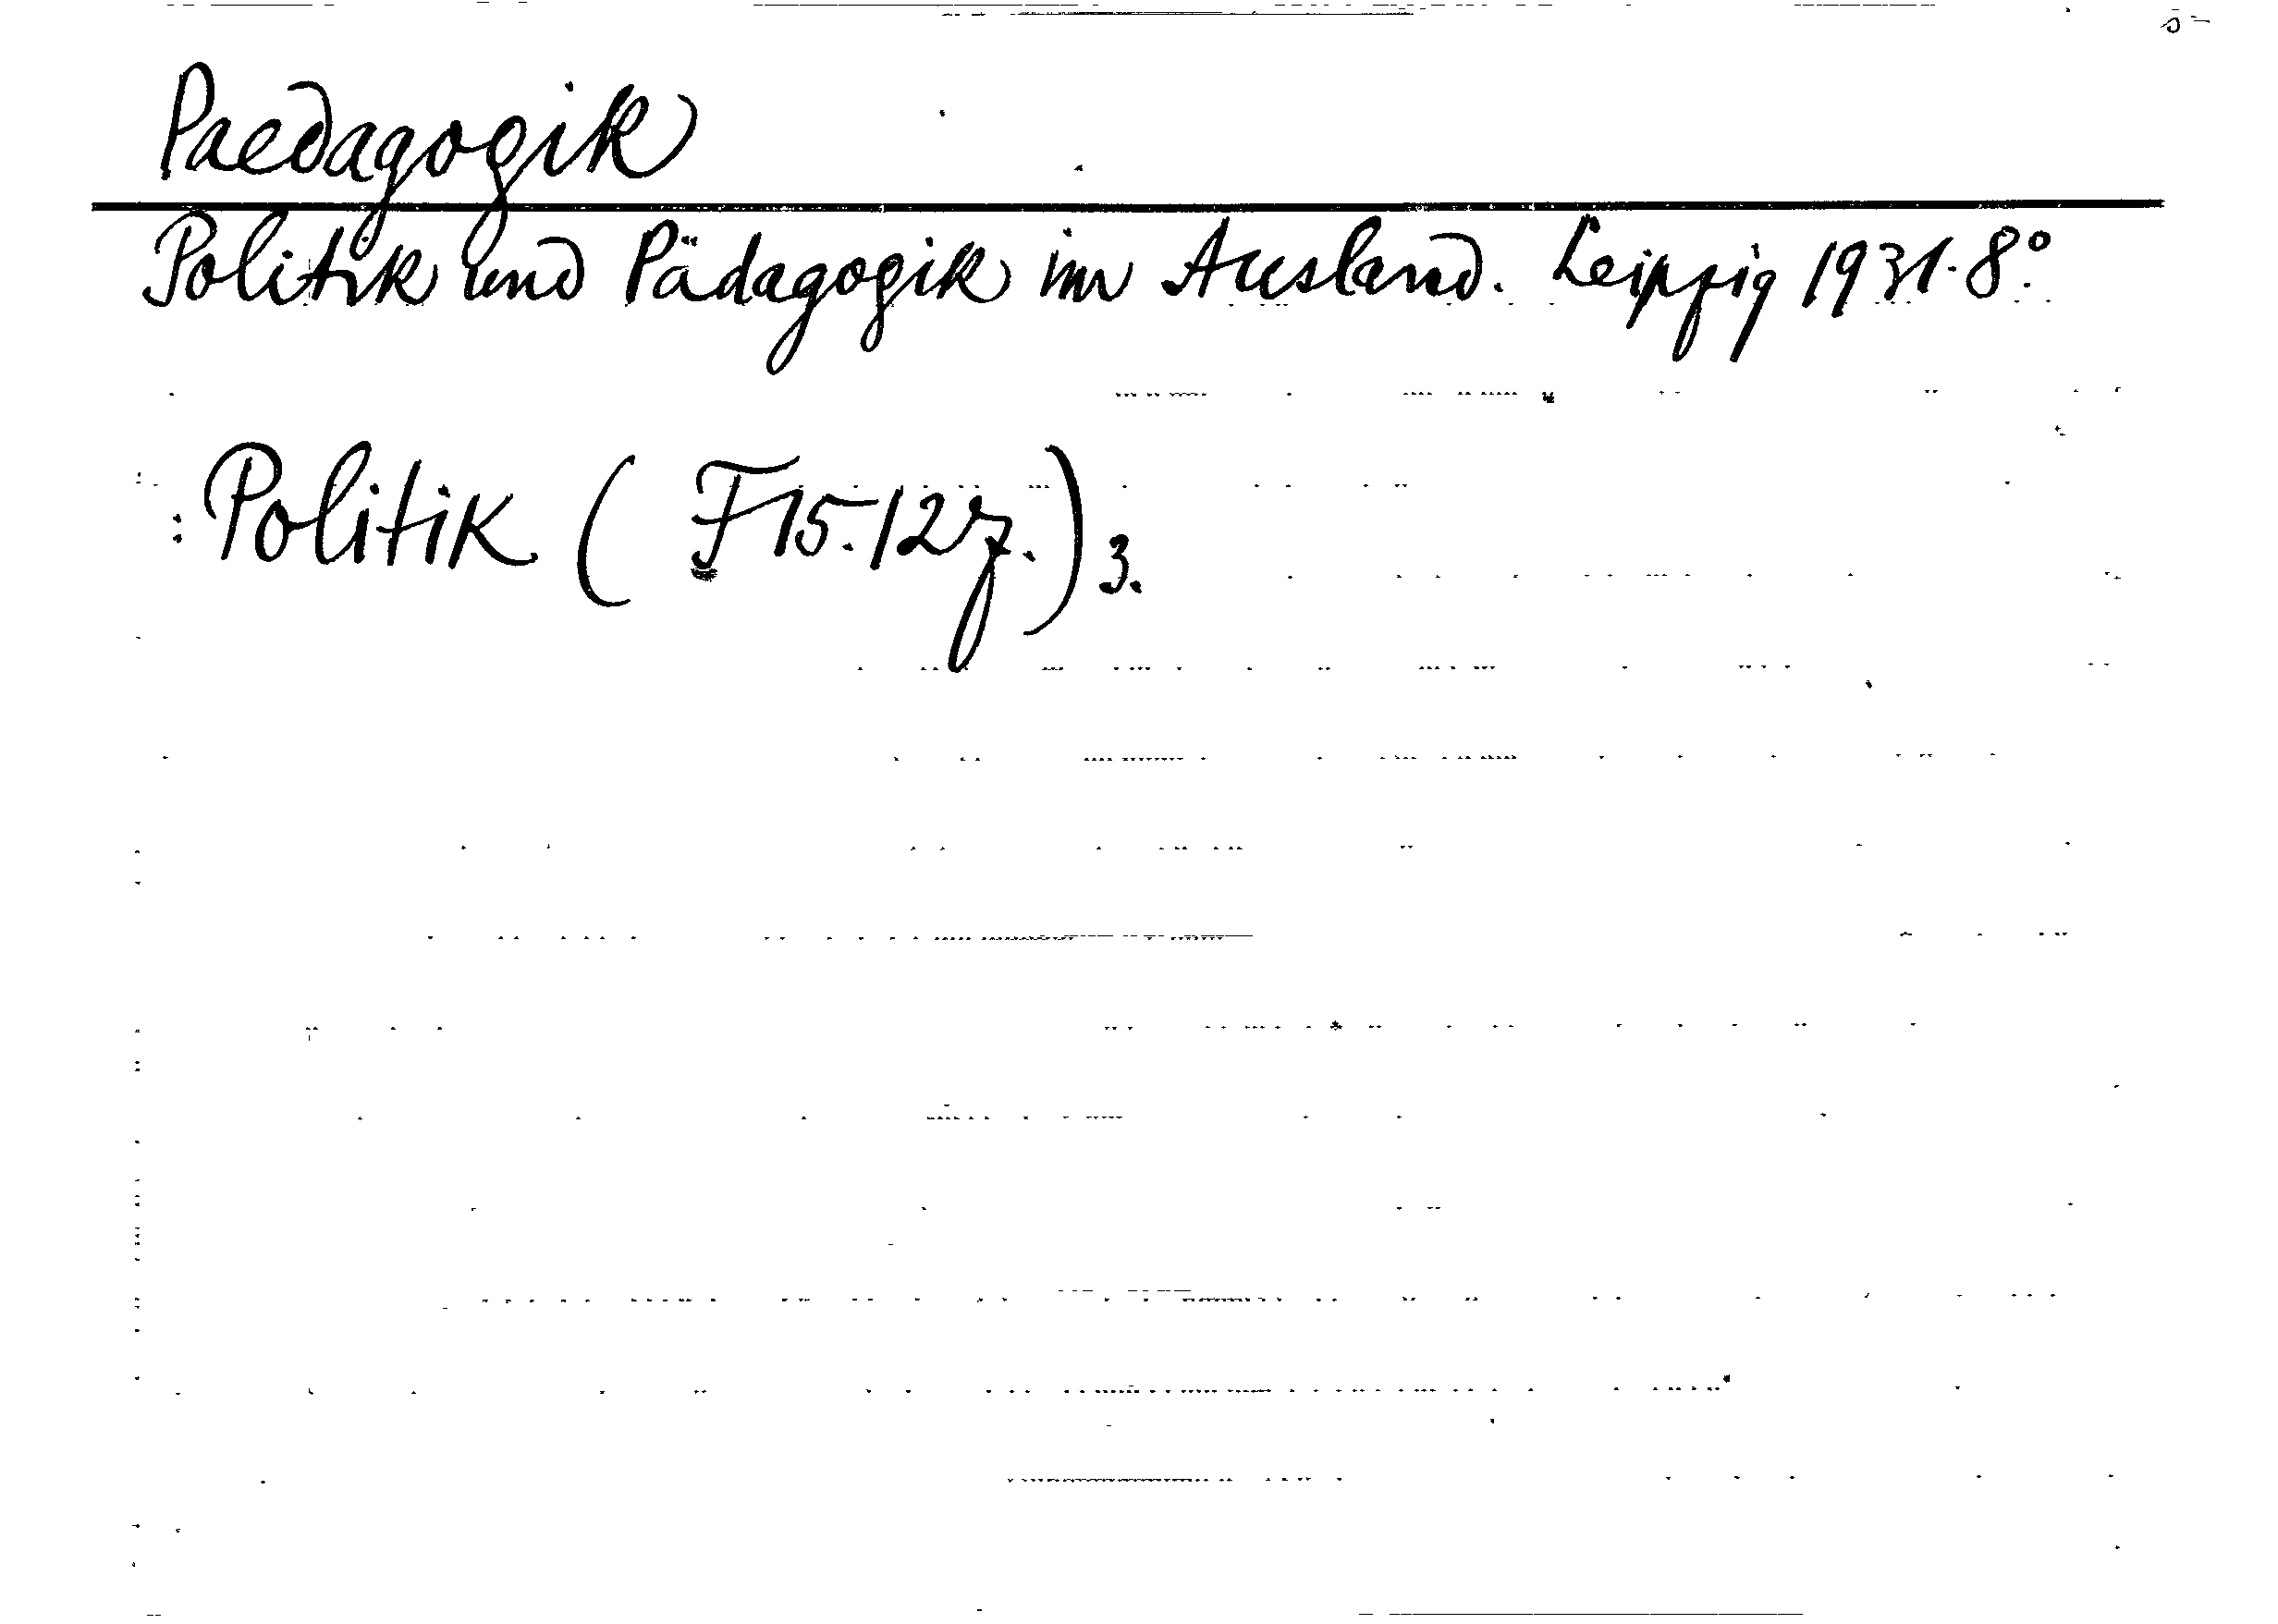 Paedagogik
Politik und Pädagogik im Ausland. Leipzig 1931. 8°.
: Politik ( F15.12z.)3.